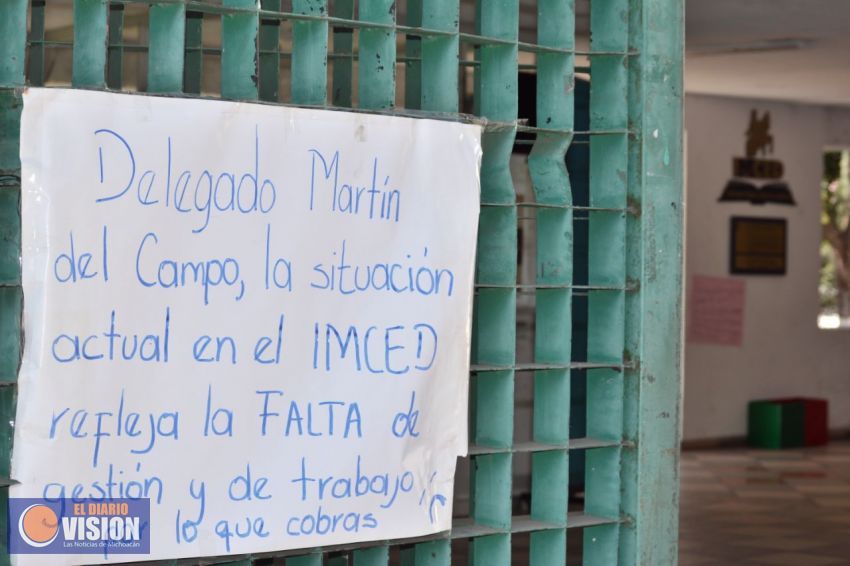 Delegado Martín
del Campo, la situación
actual en el IMCED
refleja la FALTA de
gestión y de trabajo,
lo que cobras
EL DIARIO
VISION
Las Noticias de Michoacán